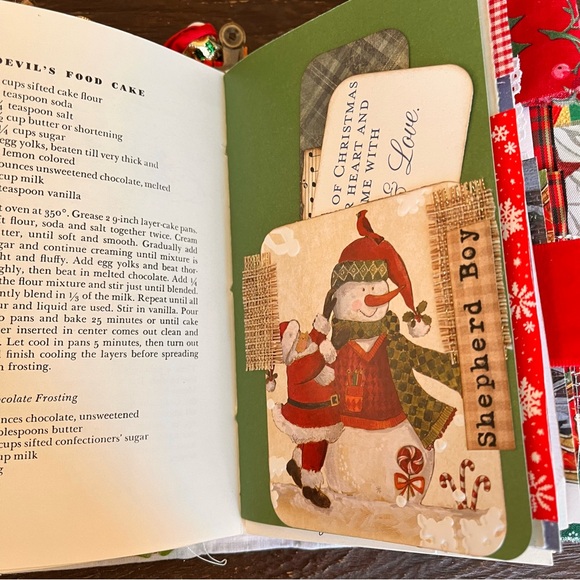 DEVIL'S FOOD CAKE
cups sifted cake flour
teaspoon soda
teaspoon salt
cup butter or shortening
¼ cups sugar
egg yolks, beaten till very thick and
lemon colored
ounces unsweetened chocolate, melted
cup milk
teaspoon vanilla
oven at 350°. Grease 2 9-inch layer-cake pans.
flour, soda and salt together twice. Cream
until soft and smooth. Gradually add
and continue creaming until mixture is
and fluffy. Add egg yolks and beat
then beat in melted chocolate. Add ¼
the flour mixture and stir just until blended.
blend in ⅓ of the milk. Repeat until all
and liquid are used. Stir in vanilla. Pour
pans and bake 25 minutes or until cake
inserted in center comes out clean and
Let cool in pans 5 minutes, then turn out
finish cooling the layers before spreading
frosting.
Chocolate Frosting
ounces chocolate, unsweetened
tablespoons butter
cups sifted confectioners' sugar
cup milk
OF CHRISTMAS
HEART AND
ME WITH
& Love.
Shepherd Boy